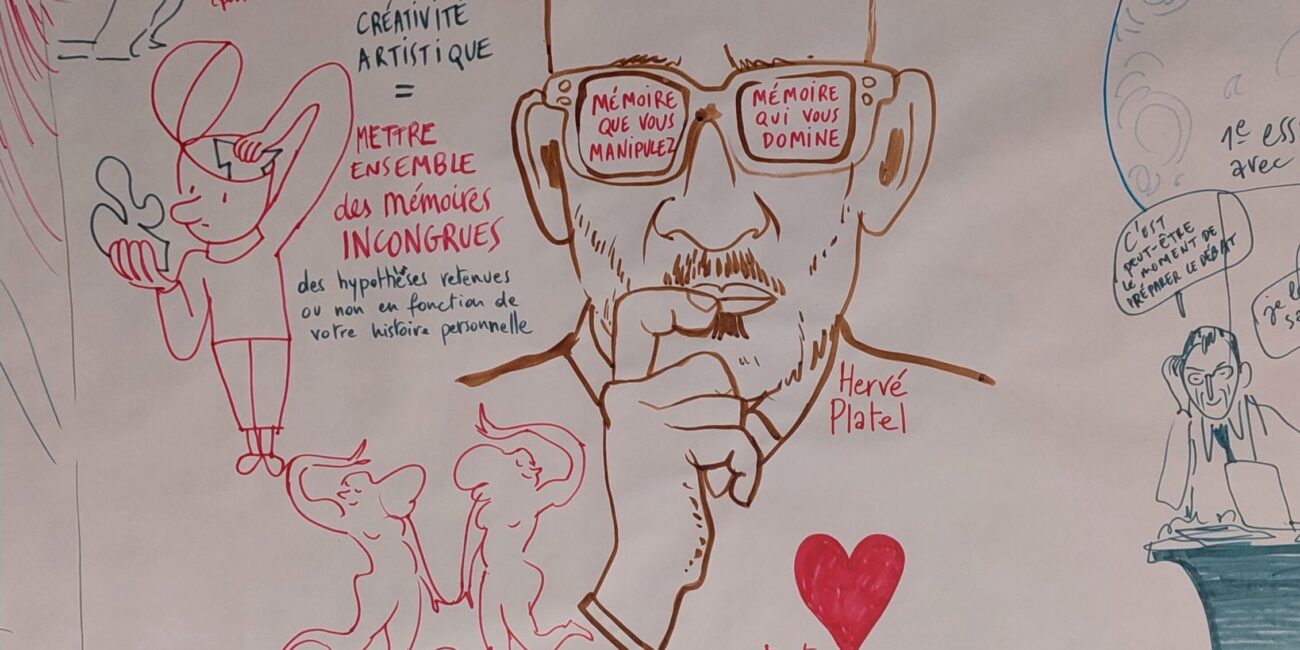 CRÉATIVITÉ
ARTISTIQUE
=
METTRE
ENSEMBLE
des mémoires
INCONGRUES
des hypothèses retenues
ou non en fonction de
votre histoire personnelle
MÉMOIRE
QUE VOUS
MANIPULEZ
MÉMOIRE
QUI VOUS
DOMINE
Hervé
Platel
1e
avec
C'EST
PEUT-ÊTRE
LE MOMENT DE
PRÉPARER LE DÉBAT
je